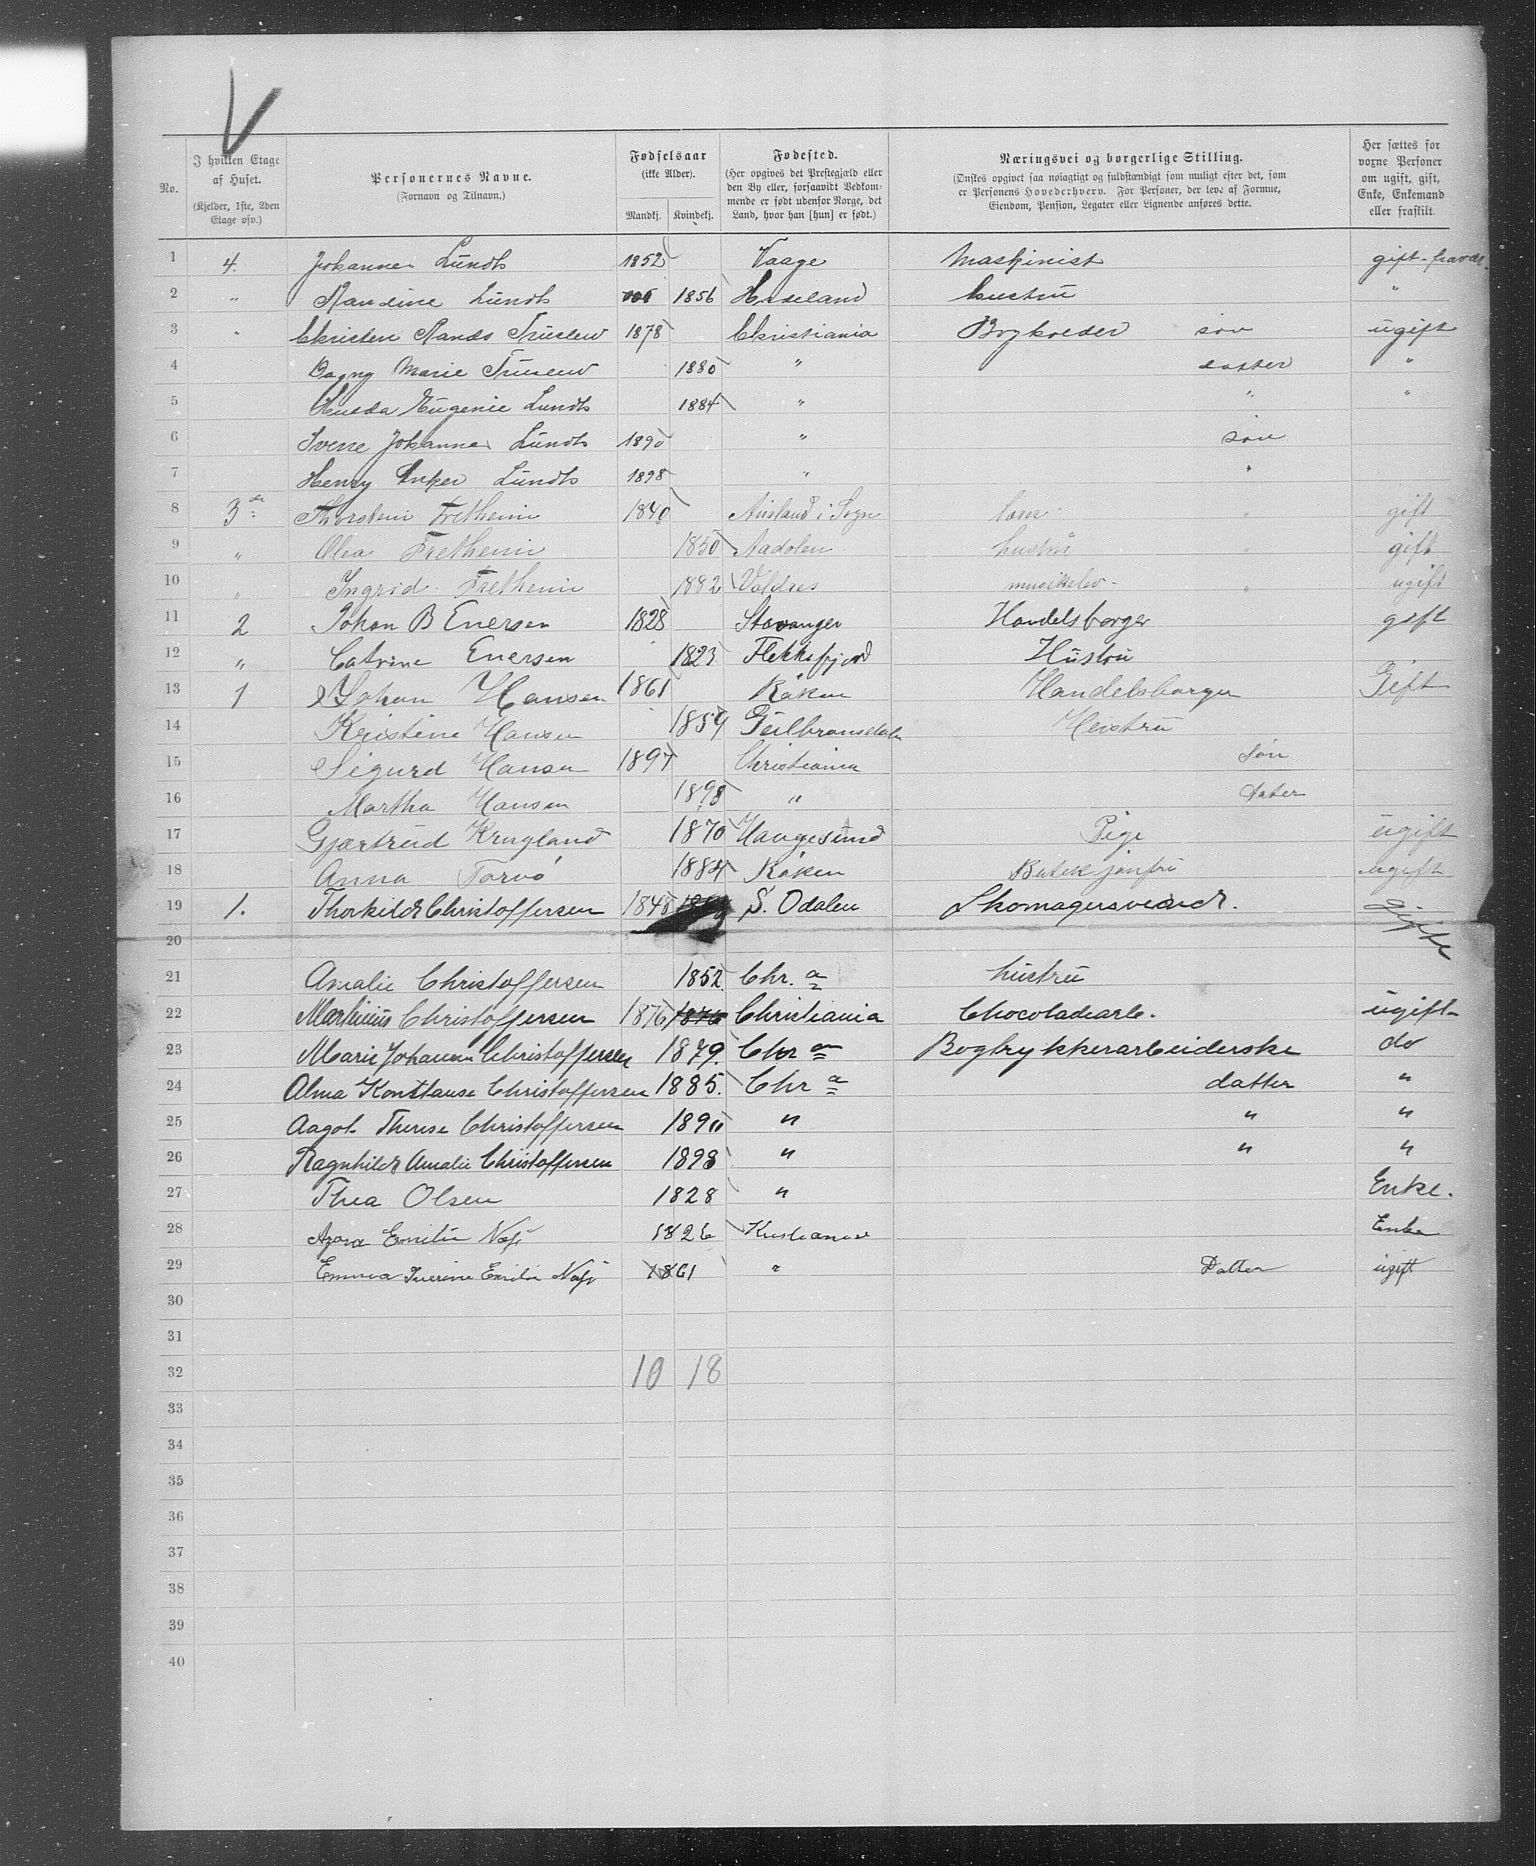 V
No.
I hvilken Etage af Huset. (Kjelder, 1ste, 2den Etage osv.)
Personernes Navne. (Fornavn og Tilnavn.)
Fødselsaar (ikke Alder). Mandkj. Kvindekj.
Fødested. (Her opgives det Prestegjæld eller den By eller, forsaavidt Vedkommende er født udenfor Norge, det Land, hvor han [hun] er født.)
Næringsvei og borgerlige Stilling. (Ønskes opgivet saa nøiagtigt og fuldstændigt som muligt efter det, som er Personens Hovederhverv. For Personer, der leve af Formue, Eiendom, Pension, Legater eller Lignende anføres dette.)
Her sættes for voxne Personer om ugift, gift, Enke, Enkemand eller fraskilt.
1 4. Johannes Lundh 1852 Vaage Maskinist gift
2 " Lundh 1856 hustru "
3 " Christen Truelsen 1878 Christiania søn ugift
4 Dagny Marie 1880 " datter "
5 Hulda Eugenie Lundh 1884 " " "
6 Sverre Johannes Lundh 1890 " søn
7 Henry Anker Lundh 1898 " "
8 3de Thorstein Fretheim 1840 Aurland i Sogn " gift
9 " Olea Fretheim 1850 Aadalen hustru " gift
10 " Ingrid Fretheim 1882 Valdres musikelev " ugift
11 2 Johan B Enersen 1828 Stavanger Handelsborger gift
12 " Catrine Enersen 1823 Flekkefjord Hüstru
13 1 Johan Hansen 1861 Røken Handelsborger Gift
14 Kristine Hansen 1859 Hustru
15 Sigurd Hansen 1897 Christiania Søn
16 Martha Hansen 1898 " Dater
17 Gjærtrud Krugland 1870 Haugesund Pige ugift
18 Anna Torvø 1884 Røken Butekjomfru ugift
19 1. Thorkild Christoffersen 1848 S. Odalen Skomagersvend. Gifte
20
21 Amalie Christoffersen 1852 Chr.a hustru
22 Marthinius Christoffersen 1876 1876 Christiania Chocoladearb. ugift
23 Marie Johanna Christoffersen 1879. Chr an Bogtrykkerarbeiderske do
24 Alma Konstanse Christoffersen 1885. Chr a datter "
25 Aagot Therese Christoffersen 1890 " " "
26 Ragnhild Amalie Christoffersen 1893 " " "
27 Thea Olsen 1828 " Enke.
28 Emilie 1826 Kristiania Enke
29 Emma Emilie 1861 " Datter ugift
30
31
32 10 18
33
34
35
36
37
38
39
40